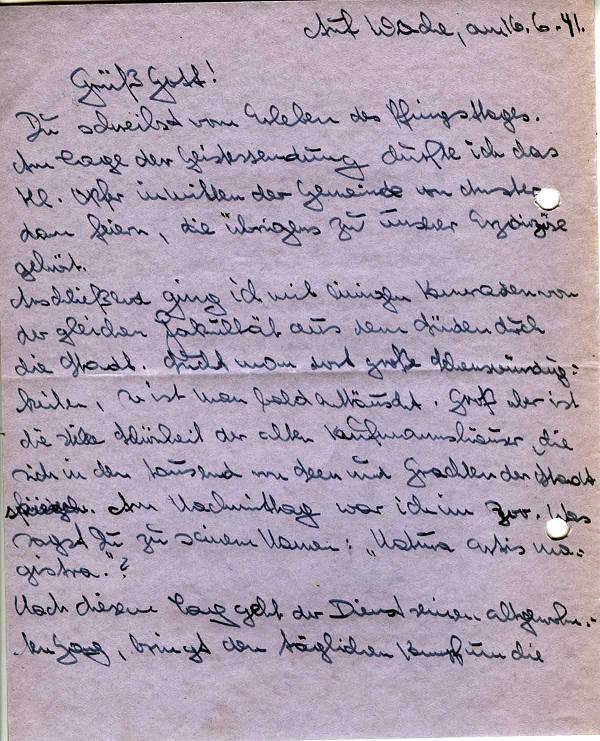 Auf Wache, am 16.6.41.
Grüß Gott!
Du schreibst vom Erleben des Pfingsttages.
Am Tage der Geistessendung durfte ich das
Hl. Opfer inmitten der Gemeinde von Amster
dam feiern, die übrigens zu unserer Erzdiözese
gehört.
Anschließend ging ich mit einigen Kameraden von
der gleichen Fakultät aus dem Süden durch
die Stadt. Sucht man dort große Sehenswürdig=
keiten, so ist man bald enttäuscht. Groß aber ist
die stille Schönheit der alten Kaufmannshäuser, die
sich in den tausend von Seen und Grachten der Stadt
spiegeln. Am Nachmittag war ich im Zoo. Was
sagst Du zu seinem Namen: „Natura artis ma=
gistra."?
Nach diesem Tag geht der Dienst seinen altgewohn=
ten Gang, bringt den täglichen Kampf um die